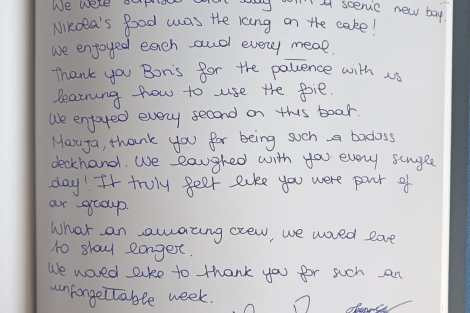 We were surprised each day with a scenic new bay.
Nikola's food was the icing on the cake!
We enjoyed each and every meal.
Thank you Boris for the patience with us
learning how to use the foil.
We enjoyed every second on this boat.
Marija, thank you for being such a badass
deckhand. We laughed with you every single
day! It truly felt like you were part of
our group.
What an amazing crew, we would love
to stay longer.
We would like to thank you for such an
unforgettable week.